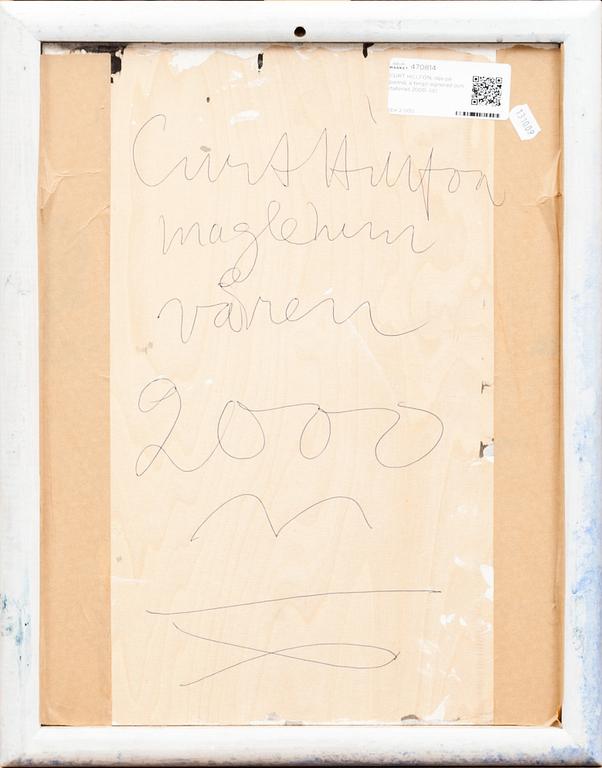 470814
CURT HILLFON, olja på
pannå, a tergo signerad och
daterad 2000.
Curt Hillfon
maglehem
våren
2000
131009